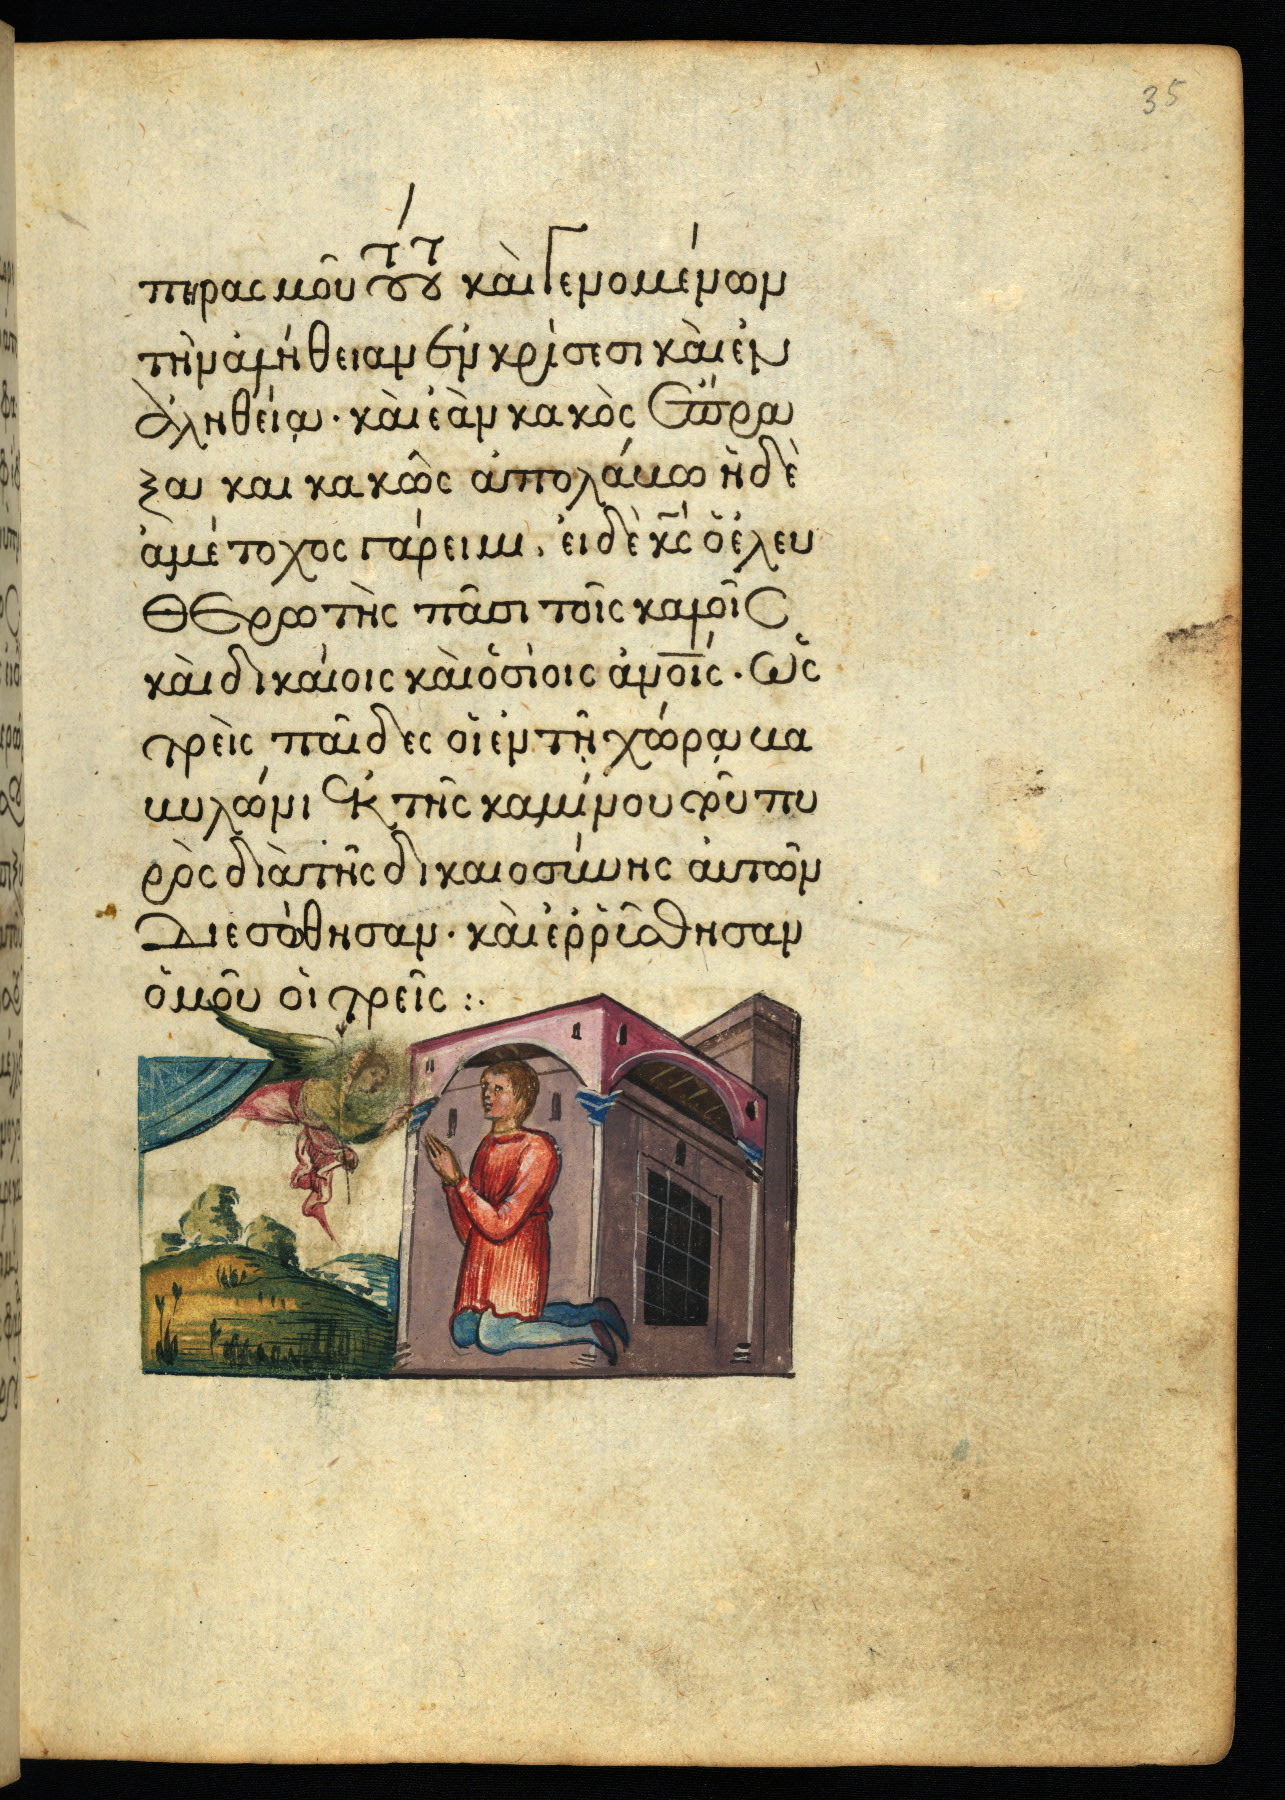 35
περασμοῦ τούτου καὶ γενομένων
τὴν ἀλήθειαν ἐν κρίσεσι καὶ ἐν
ἀληθεία · καὶ ἐὰν κακὸς
ξαι και κακῶς ἀπολάβω ἢ δὲ
ἀμέτοχος γάρ ειμι, ἐι δὲ κς ὁ ἐλευ
θερωτὴς πᾶσι τοῖς καλοῖς
καὶ δικαίοις καὶ ὁσίοις ἀνοῖς · ὡς
τρεὶς παῖδες οἱ ἐν τῇ χώρα βα
βυλῶνι ἐκ τῆς καμίνου τοῦ πυ
ρὸς διὰ τῆς δικαιοσύνης ἀυτῶν
διεσώθησαν · καὶ ἐρρύσθησαν
ὁμοῦ οἱ τρεῖς :·